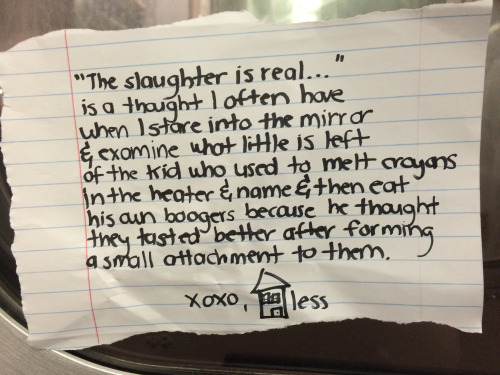 "The slaughter is real..."
is a thought I often have
when I stare into the mirror
& examine what little is left
of the kid who used to melt crayons
in the heater & name & then eat
his own boogers because he thought
they tasted better after forming
a small attachment to them.
xoxo, less